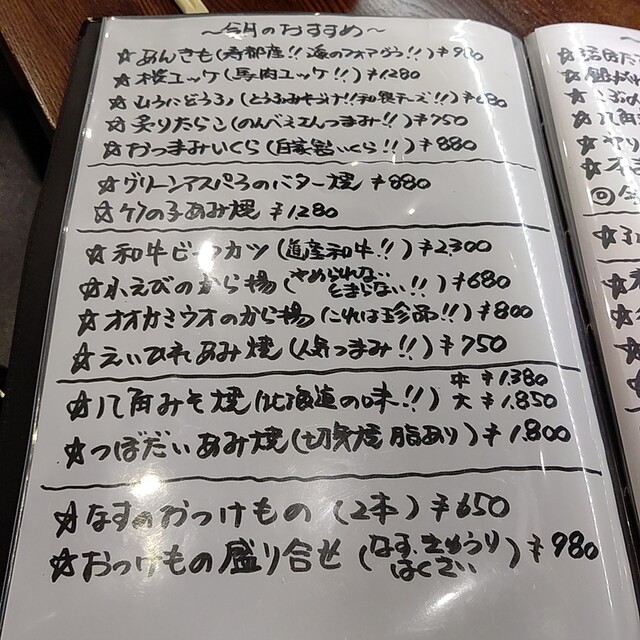 〜今月のおすすめ〜
☆あんきも(寿都産!! 海のフォアグラ!!) ¥980
☆桜ユッケ(馬肉ユッケ!!) ¥1280
☆山うにどうふ(とうふみそづけ!! 和製チーズ!!) ¥680
☆炙りたらこ(のんべえさんつまみ!!) ¥750
☆おつまみいくら(自家製いくら!!) ¥880
☆グリーンアスパラのバター焼 ¥880
☆竹の子あみ焼 ¥1280
☆和牛ビーフカツ(道産和牛!!) ¥2,300
☆小えびのから揚(やめられない とまらない!!) ¥680
☆オオカミウオのから揚(これは珍品!!) ¥800
☆えいひれあみ焼(人気つまみ!!) ¥750
☆八角みそ焼(北海道の味!!) 中 ¥1,380
大 ¥1,850
☆つぼだいあみ焼(切身焼 脂あり) ¥1,800
☆なすのおつけもの(2本) ¥650
☆おつけもの盛り合せ(なす、きゅうり はくさい) ¥980